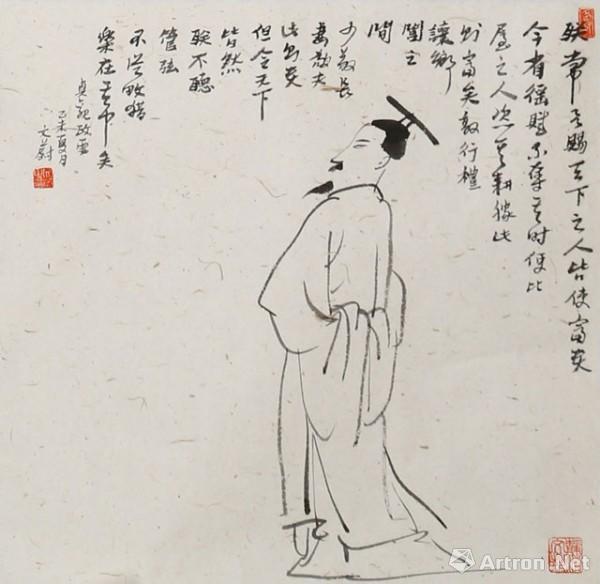 朕常欲賜天下之人皆使富貴
今省徭賦不奪其時使比
屋之人恣其耕稼此
則富矣敦行禮
讓鄉
閭之
間
少敬長
妻敬夫
此則貴
但令天下
皆然
朕不聽
管弦
不從畋獵
樂在其中矣
貞觀政要
乙未夏月
文蔚
Artron.Net